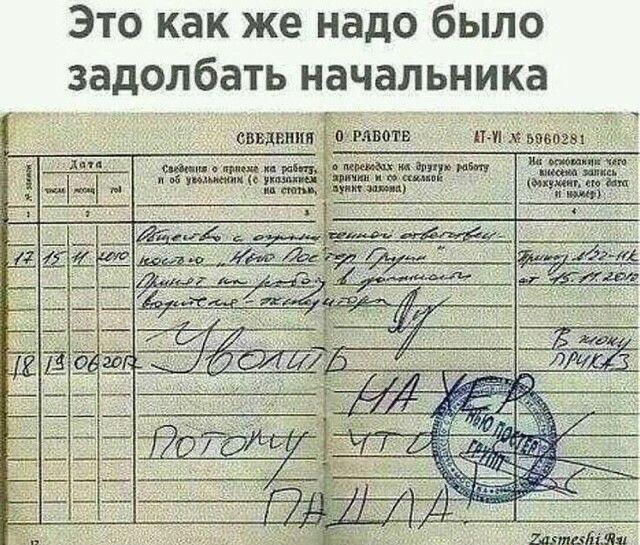 Это как же надо было
задолбать начальника
СВЕДЕНИЯ О РАБОТЕ АТ-VI № 5960281
№ записи
Дата
число месяц год
Сведения о приеме на работу, о переводах на другую работу
и об увольнении (с указанием причин и со ссылкой
на статью, пункт закона)
На основании чего
внесена запись
(документ, его дата
и номер)
1 2 3 4
Общество с ограниченной ответствен-
17 15 11 2010 ностью "Нью Постер Групп" Приказ №22-НК
Принят на работу в должности от 15.11.2010
водителя-экспедитора
В жопу
18 19 06 2012 Уволить ПРИКАЗ
НА ХЕР
ПОТОМУ ЧТО
ПАДЛА!
НЬЮ ПОСТЕР
ГРУПП
Zasmeshi.Ru